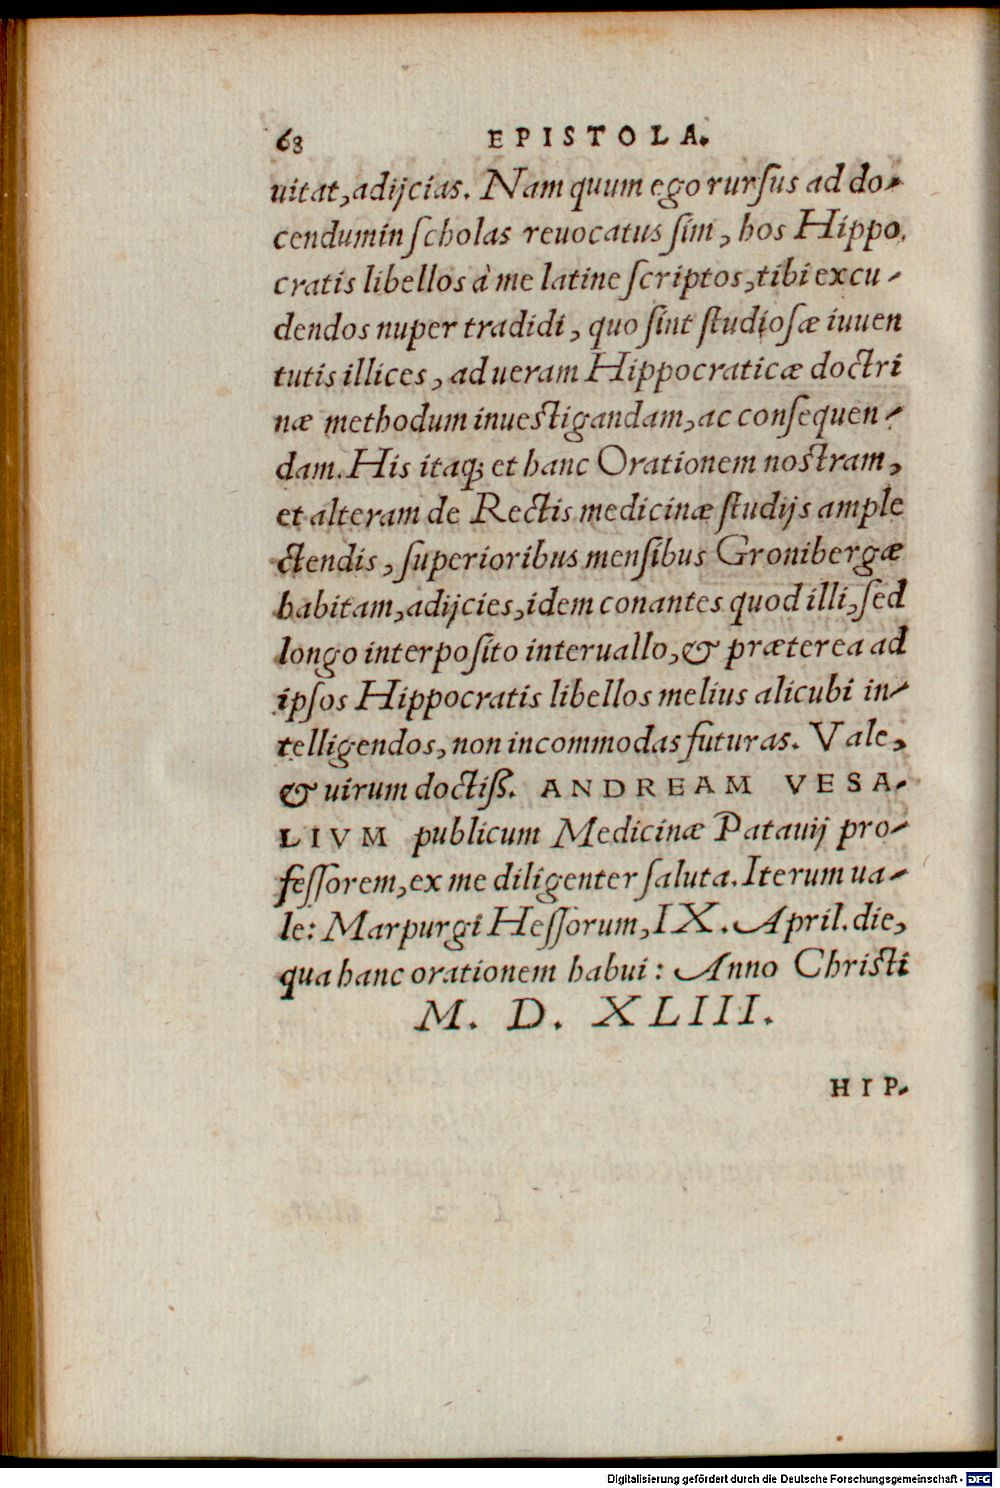 68 EPISTOLA.
uitat, adijcias. Nam quum ego rursus ad do-
cendum in scholas reuocatus sim, hos Hippo.
cratis libellos à me latine scriptos, tibi excu-
dendos nuper tradidi, quo sint studiosæ iuuen
tutis illices, ad ueram Hippocraticæ doctri
næ methodum inuestigandam, ac consequen-
dam. His itaq; et hanc Orationem nostram,
et alteram de Rectis medicinæ studijs ample
ctendis, superioribus mensibus Gronibergæ
habitam, adijcies, idem conantes quod illi, sed
longo interposito interuallo, & præterea ad
ipsos Hippocratis libellos melius alicubi in-
telligendos, non incommodas futuras. Vale,
& uirum doctiß. ANDREAM VESA-
LIVM publicum Medicinæ Patauij pro-
fessorem, ex me diligenter saluta. Iterum ua-
le: Marpurgi Hessorum, IX. April. die,
qua hanc orationem habui: Anno Christi
M. D. XLIII.
HIP-
Digitalisierung gefördert durch die Deutsche Forschungsgemeinschaft - DFG